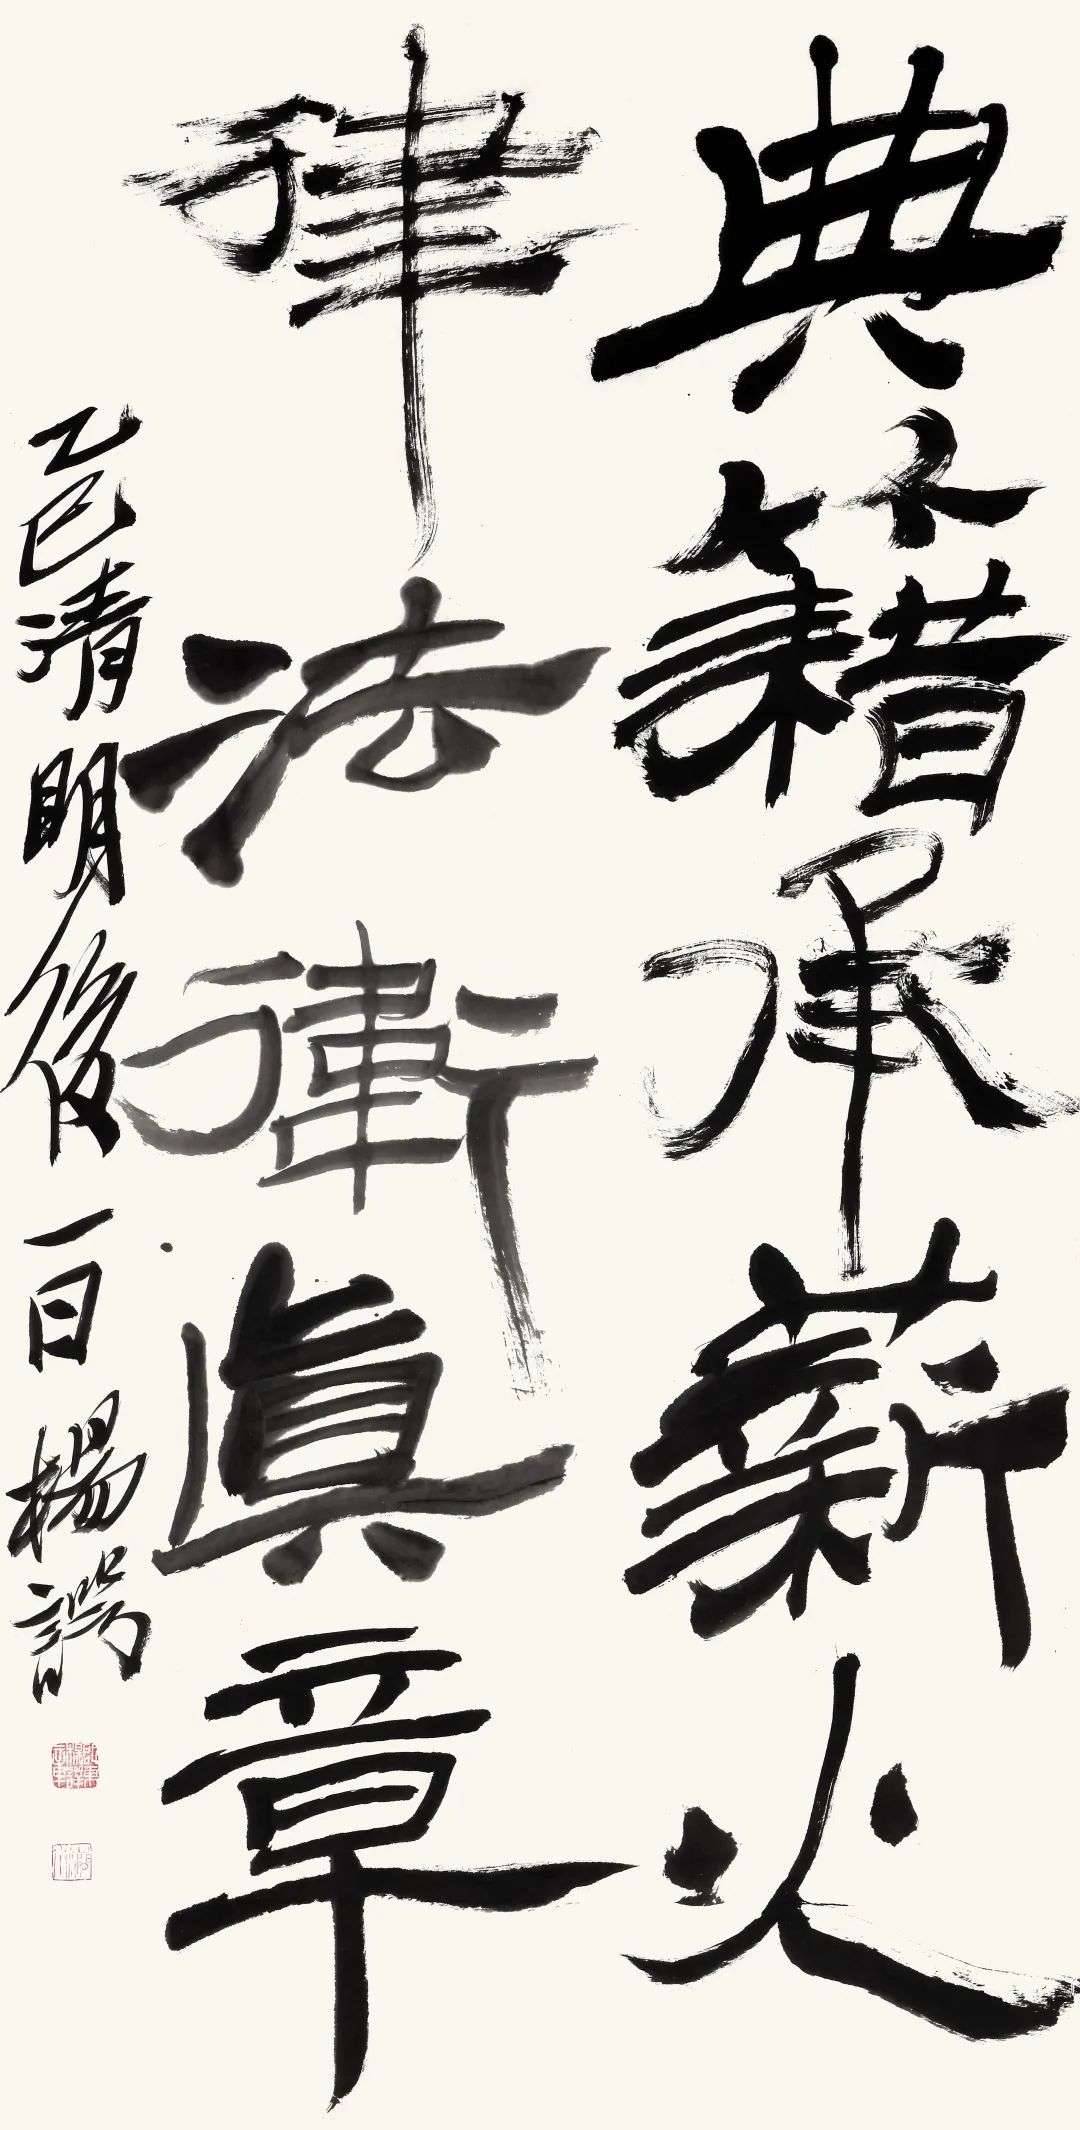 典籍承薪火
律法衛真章
乙巳清明後一日楊諤